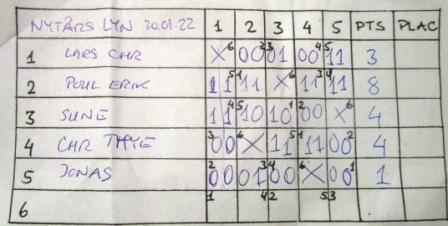 NYTÅRS LYN 20.01.22 1 2 3 4 5 PTS PLAC
1 LARS CHR X 6 00 2 3 01 00 4 5 11 3
2 POUL ERIK 11 5 1 11 X 6 11 3 4 11 8
3 SUNE 11 4 5 10 10 1 2 00 X 6 4
4 CHR THYE 3 00 6 X 11 5 1 11 00 2 4
5 JONAS 2 00 01 3 4 00 6 X 00 1 1
6 1 4 2 5 3